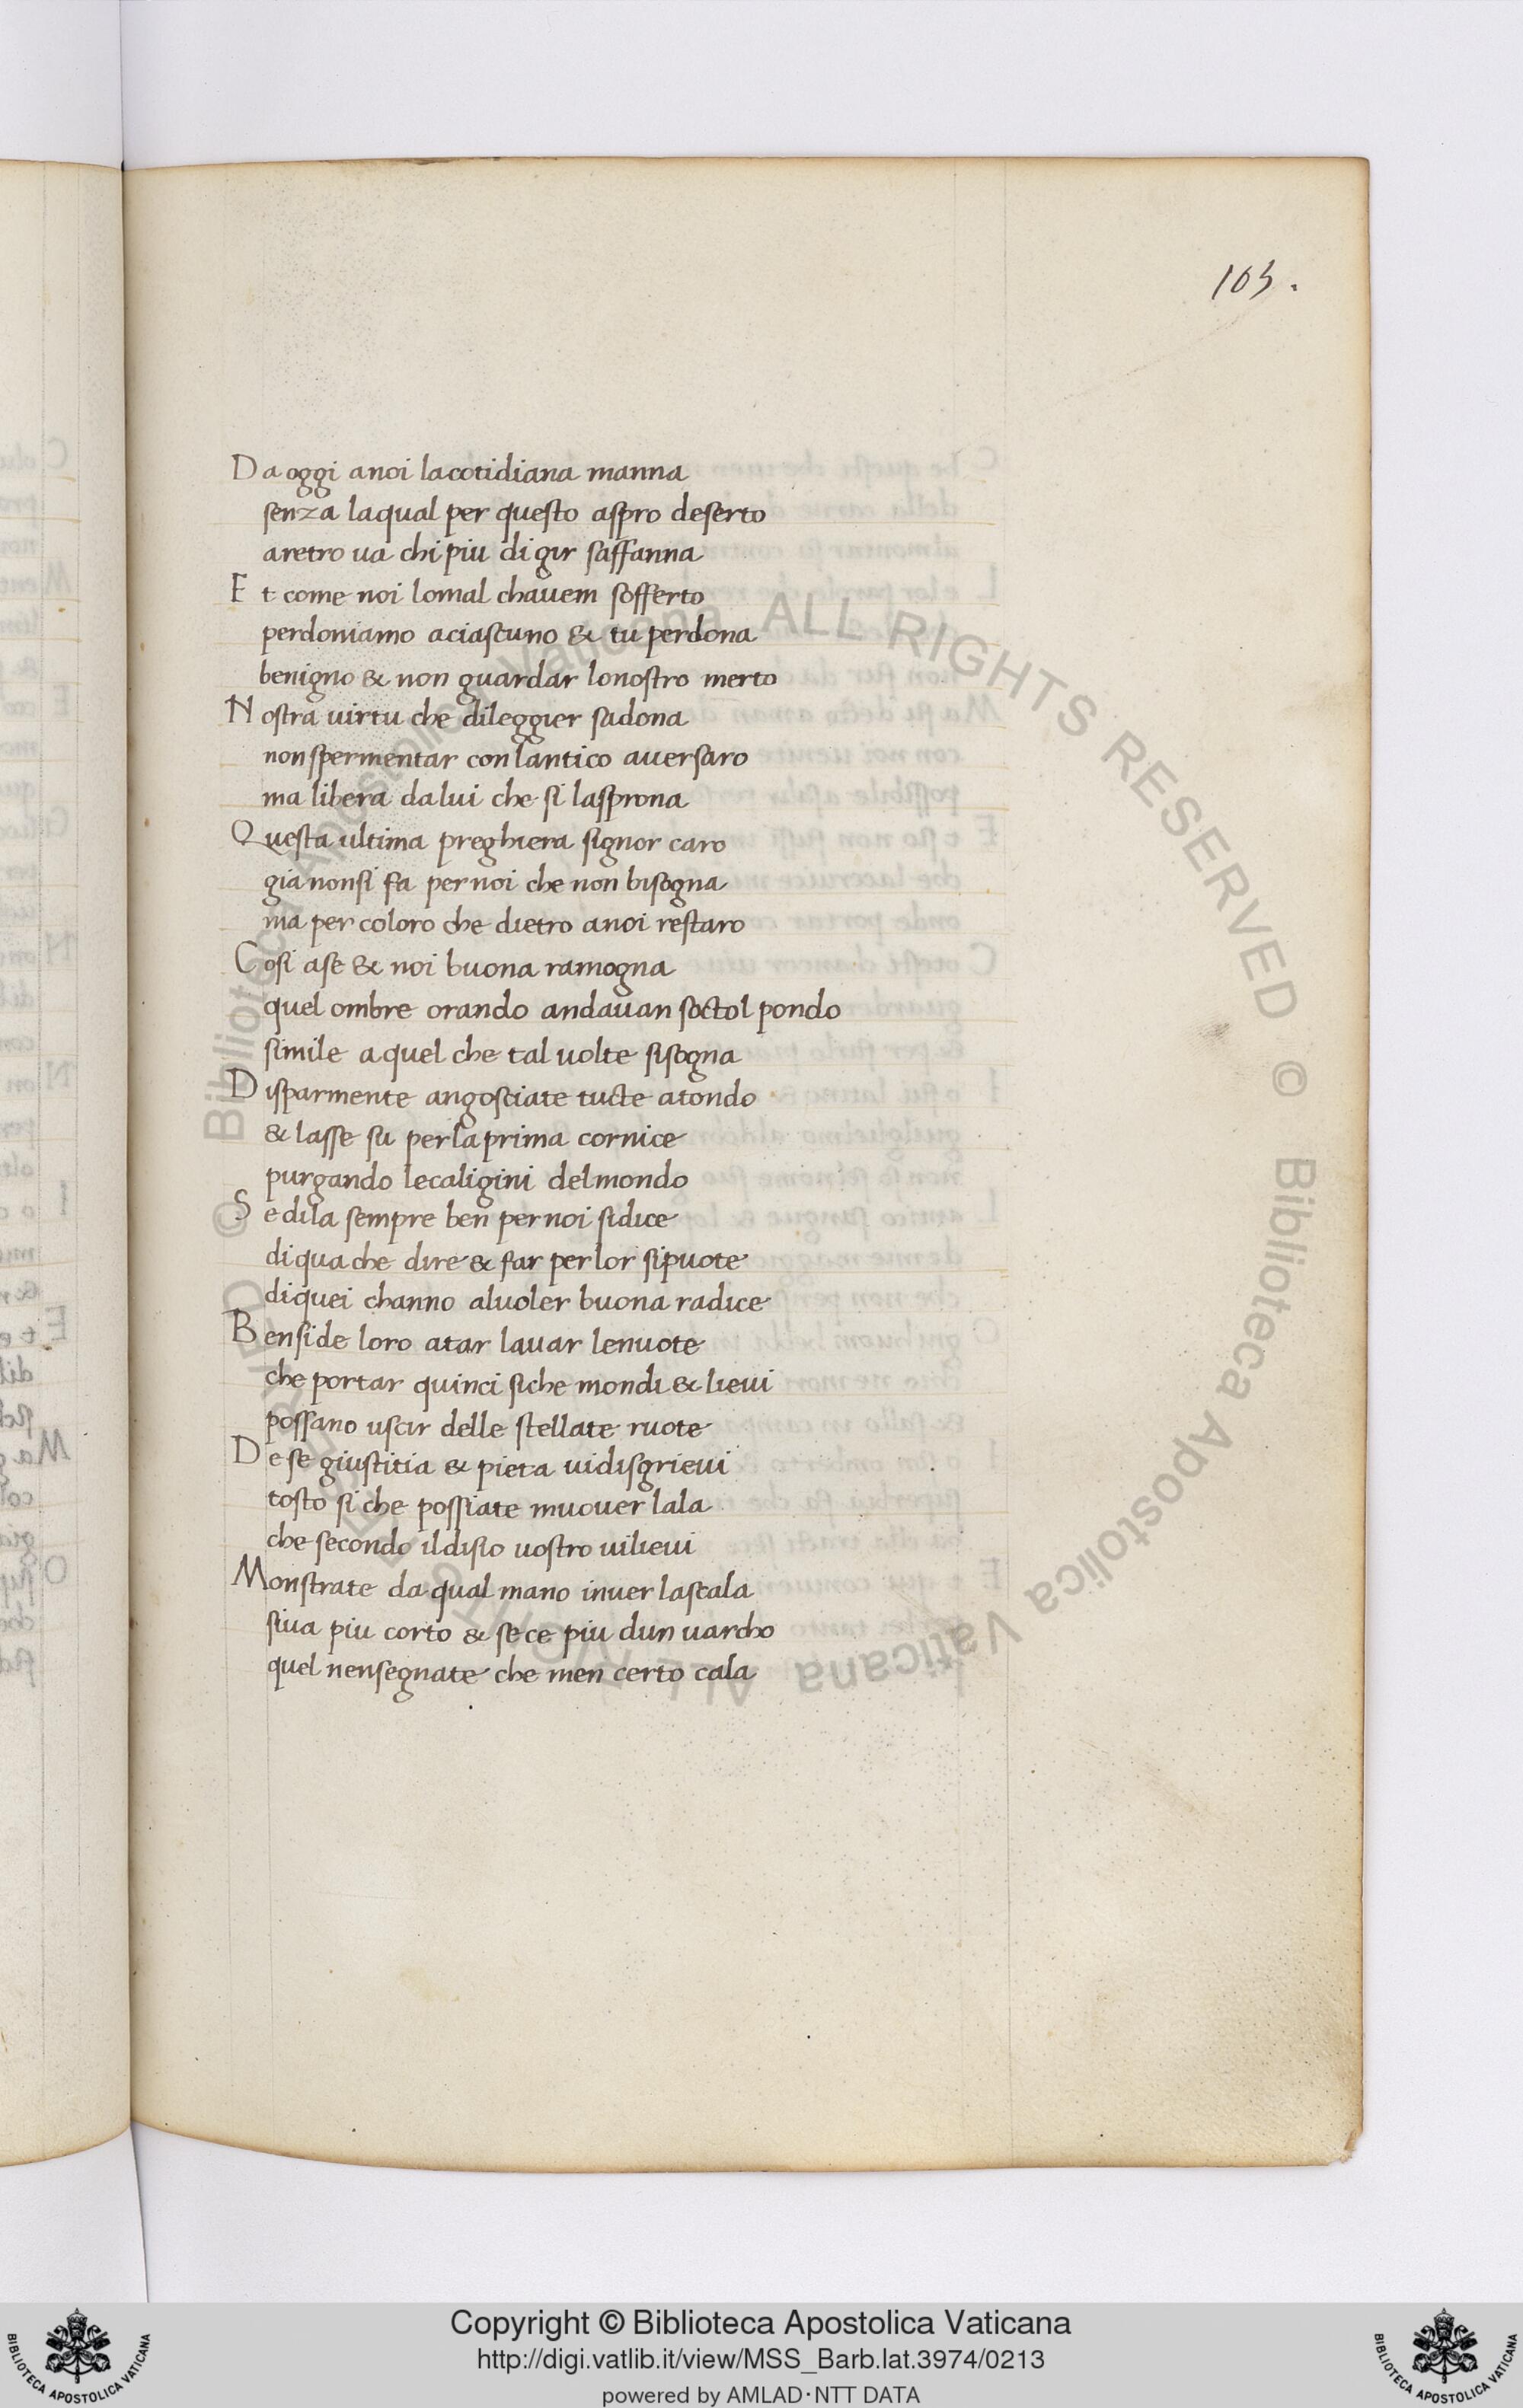 103.
Da oggi anoi lacotidiana manna
senza laqual per questo aspro deserto
aretro ua chi piu di gir saffanna
Et come noi lomal chauem sofferto
perdoniamo aciascuno & tu perdona
benigno & non guardar lonostro merto
Nostra uirtu che dileggier sadona
non spermentar con lantico auersaro
ma libera dalui che si lasprona
Questa ultima preghiera signor caro
gia nonsi fa pernoi che non bisogna
ma per coloro che dietro anoi restaro
Cosi ase & noi buona ramogna
quel ombre orando andauan soctol pondo
simile aquel che tal uolte sisogna
Disparmente angosciate tucte atondo
& lasse su perla prima cornice
purgando lecaligini delmondo
Se dila sempre ben pernoi sidice
diqua che dire & far perlor sipuote
diquei channo aluoler buona radice
Benside loro atar lauar lenuote
che portar quinci siche mondi & lieui
possano uscir delle stellate ruote
De se giustitia & pieta uidisgrieui
tosto si che possiate muouer lala
che secondo ildisio uostro uilieui
Monstrate da qual mano inuer lascala
siua piu corto & sece piu dun uarcho
quel nensegnate che men certo cala
Copyright © Biblioteca Apostolica Vaticana
http://digi.vatlib.it/view/MSS_Barb.lat.3974/0213
powered by AMLAD·NTT DATA
BIBLIOTECA APOSTOLICA VATICANA
BIBLIOTECA APOSTOLICA VATICANA
© Biblioteca Apostolica Vaticana ALL RIGHTS RESERVED
© Biblioteca Apostolica Vaticana ALL RIGHTS RESERVED